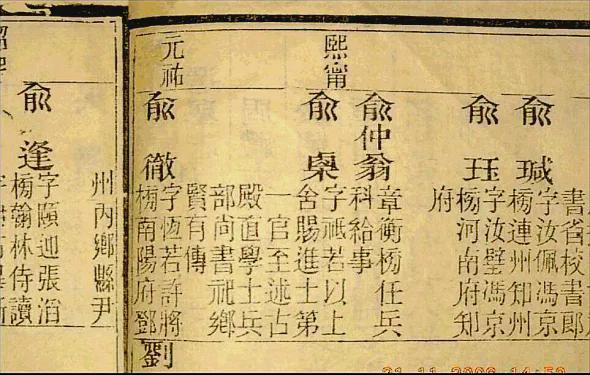 書省校書郎
俞瑊
字汝佩馮京
榜連州知州
俞玨
字汝璧馮京
榜河南府知
府
熙甯
俞仲翁
章衡榜任兵
科給事
俞㮚
字祗若以上
舍賜進士第
一官至述古
殿直學士兵
部尚書祀鄉
賢有傳
元祐
俞徹
字恆若許將
榜南陽府鄧
劉
州內鄉縣尹
俞逢
字頤迎張滔
榜翰林侍讀